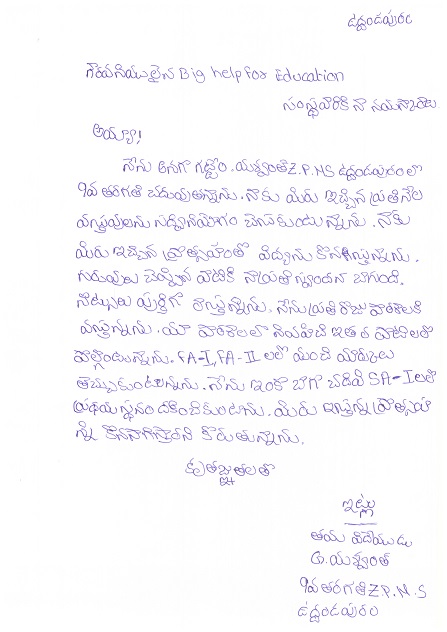 ఉద్దండపురం
గౌరవనీయులైన Big help for Education
సంస్థవారికి నా నమస్కారాలు
అయ్యా!
నేను అనగా గట్టెం. యశ్వంత్ Z.P.H.S ఉద్దండపురంలో
9వ తరగతి చదువుతున్నాను. నాకు మీరు ఇచ్చిన ప్రతినెల
వస్తువులను సద్వినియోగం చేసుకుంటున్నాను. నాకు
మీరు ఇచ్చిన ప్రోత్సాహంతో విద్యను కొనసాగిస్తున్నాను.
గురువులు చెప్పిన వాటికి నా ప్రతిస్పందన బాగుంది.
నోట్సులు పూర్తిగా రాస్తున్నాను. నేను ప్రతిరోజు పాఠశాలకి
వస్తున్నాను. మా పాఠశాలలో నిర్వహించే ఇతర పోటీలలో
పాల్గొంటున్నాను. FA-I, FA-II లలో మంచి మార్కులు
తెచ్చుకుంటున్నాను. నేను ఇంకా బాగా చదివి SA-I లో
ప్రథమస్థానం దక్కించుకుంటాను. మీరు ఇస్తున్న ప్రోత్సాహా
న్ని కొనసాగిస్తారని కోరుతున్నాను.
కృతజ్ఞతలతో
ఇట్లు
తమ విదేయుడు
గ.యశ్వంత్
9వ తరగతి Z.P.H.S
ఉద్దండపురం